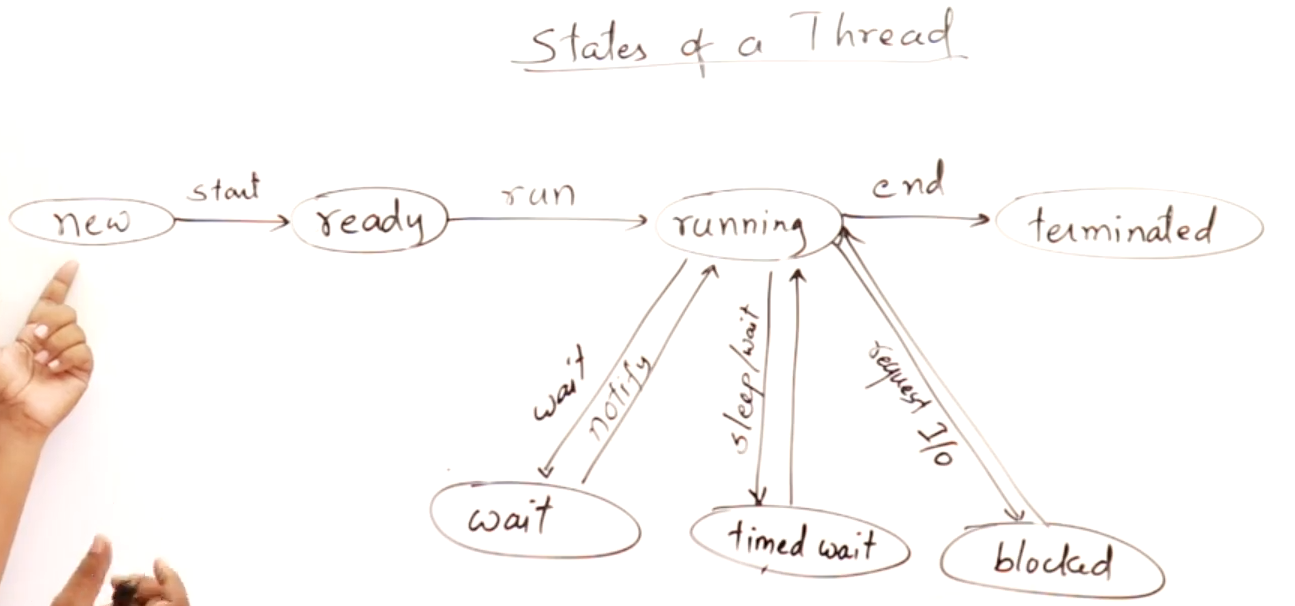 States of a Thread
start
run
end
new
ready
running
terminated
wait
notify
sleep/wait
request I/o
wait
timed wait
blocked